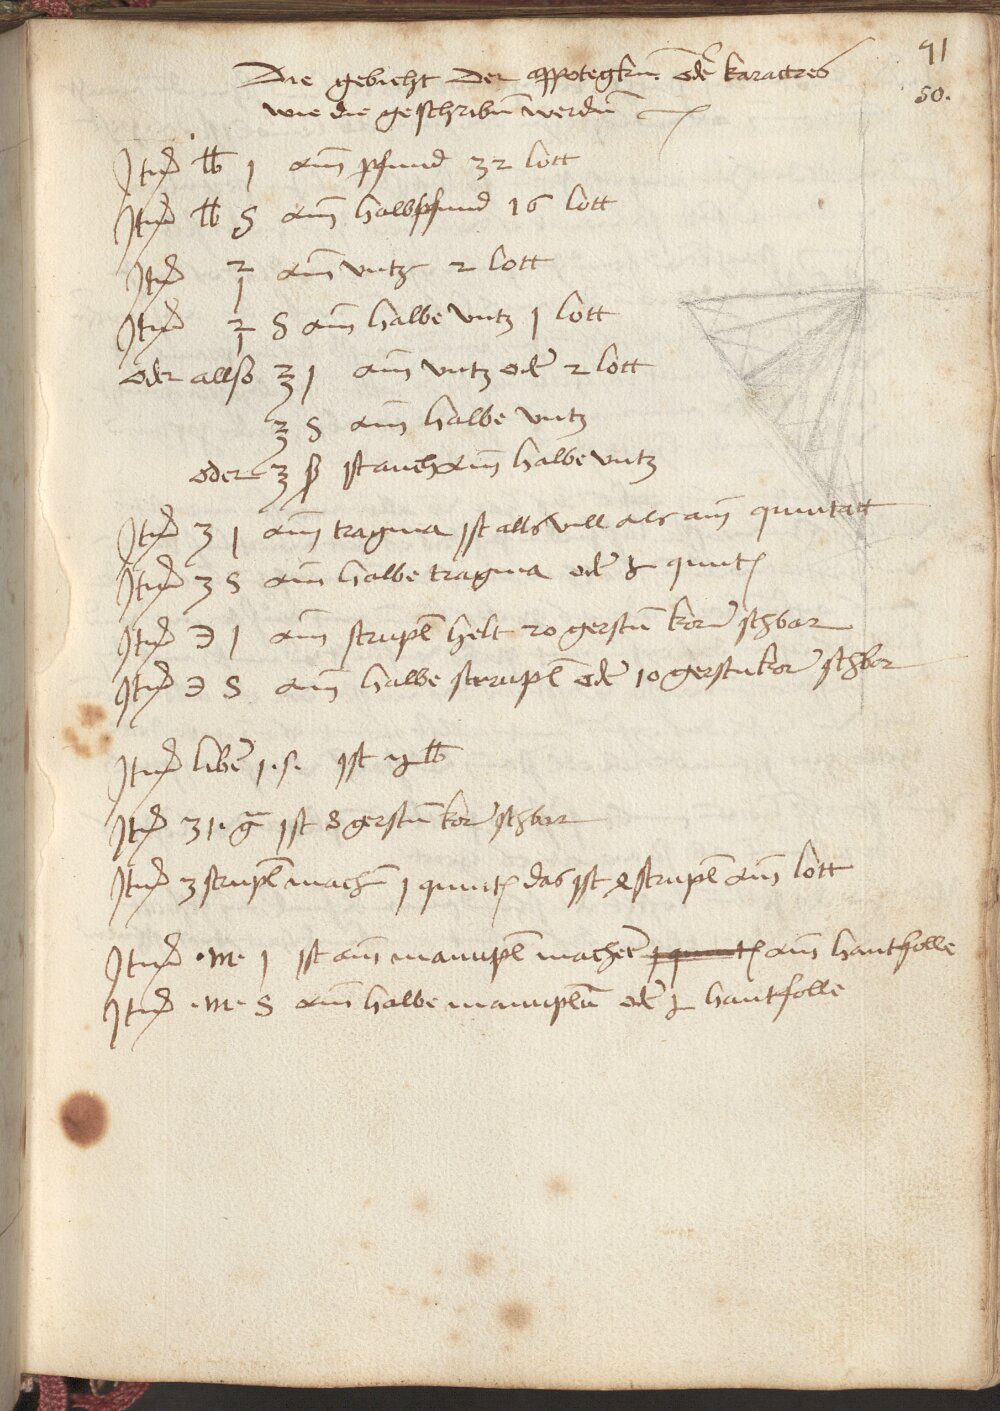 91
50.
Die gebicht der appotegkn̄ oder karactres
wie die geschribn̄ werdn̄
Itm̄ ℔ 1 ain̄ pfund 32 lott
Itm̄ ℔ S ain̄ halbpfund 16 lott
Itm̄ ain̄ untz 2 lott
Itm̄ S ain̄ halbe untz 1 lott
oder allso ℥ 1 ain̄ untz oder 2 lott
℥ S ain̄ halbe untz
oder ℥ ß ist auch ain̄ halbe untz
Itm̄ ʒ 1 ain̄ tragma ist alls vill als ain̄ quintatt
Itm̄ ʒ S ain̄ halbe tragma oder quint
Itm̄ ℈ 1 ain̄ scrupl helt 20 gerstn̄ korn schbar
Itm̄ ℈ S ain̄ halbe scrupl oder 10 gerstnkor schbar
Itm̄ liber 1.s. ist ℔
Itm̄ ʒ1. ist 8 gerstn̄ kor schbar
Itm̄ 3 scrupl machn̄ 1 quint das ist scrupl ain̄ lott
Itm̄ .m. 1 ist ain̄ manupl machet ain̄ hantfolle
Itm̄ .m. S ain̄ halbe manupln̄ oder hantfolle